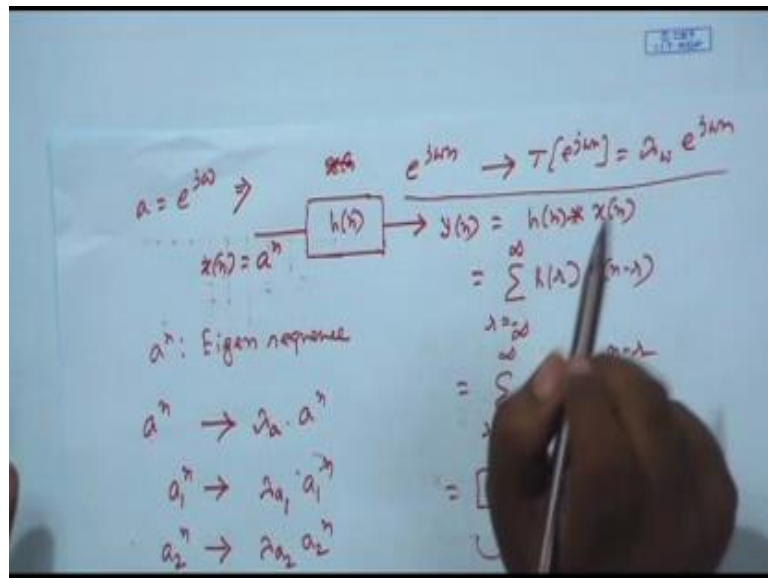 a = e^{jω} ⇒
e^{jωn} → T[e^{jωn}] = λ_ω e^{jωn}
x(n) = a^n
h(n)
→ y(n) = h(n) * x(n)
= ∑_{r=-∞}^{∞} h(r) (n-r)
a^n : Eigen sequence
= ∑ n-r
a^n → λ_a · a^n
a_1^n → λ_{a_1} · a_1^n
= [
a_2^n → λ_{a_2} a_2^n